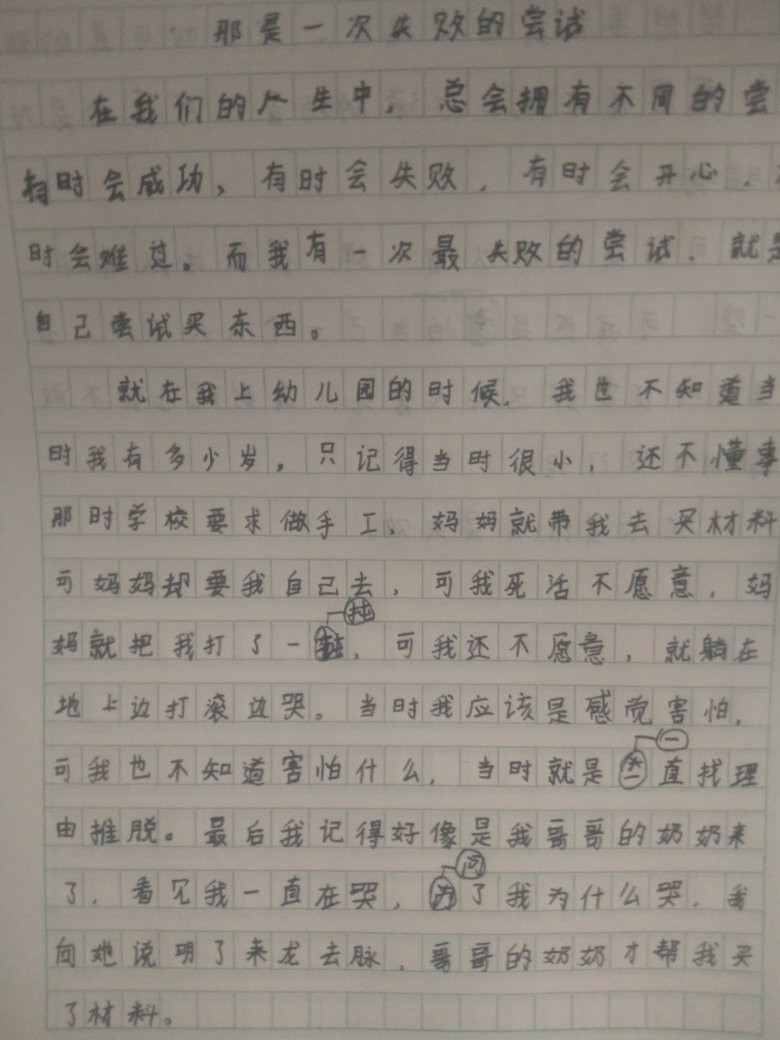 那是一次失败的尝试
在我们的人生中，总会拥有不同的尝
有时会成功、有时会失败，有时会开心，
时会难过。而我有一次最失败的尝试，就是
自己尝试买东西。
就在我上幼儿园的时候，我也不知道当
时我有多少岁，只记得当时很小，还不懂事
那时学校要求做手工，妈妈就带我去买材料
可妈妈却要我自己去，可我死活不愿意，妈
妈就把我打了一，可我还不愿意，就躺在
地上边打滚边哭。当时我应该是感觉害怕，
可我也不知道害怕什么，当时就是一直找理
由推脱。最后我记得好像是我哥哥的奶奶来
了，看见我一直在哭，问了我为什么哭，我
向她说明了来龙去脉，哥哥的奶奶才帮我买
了材料。